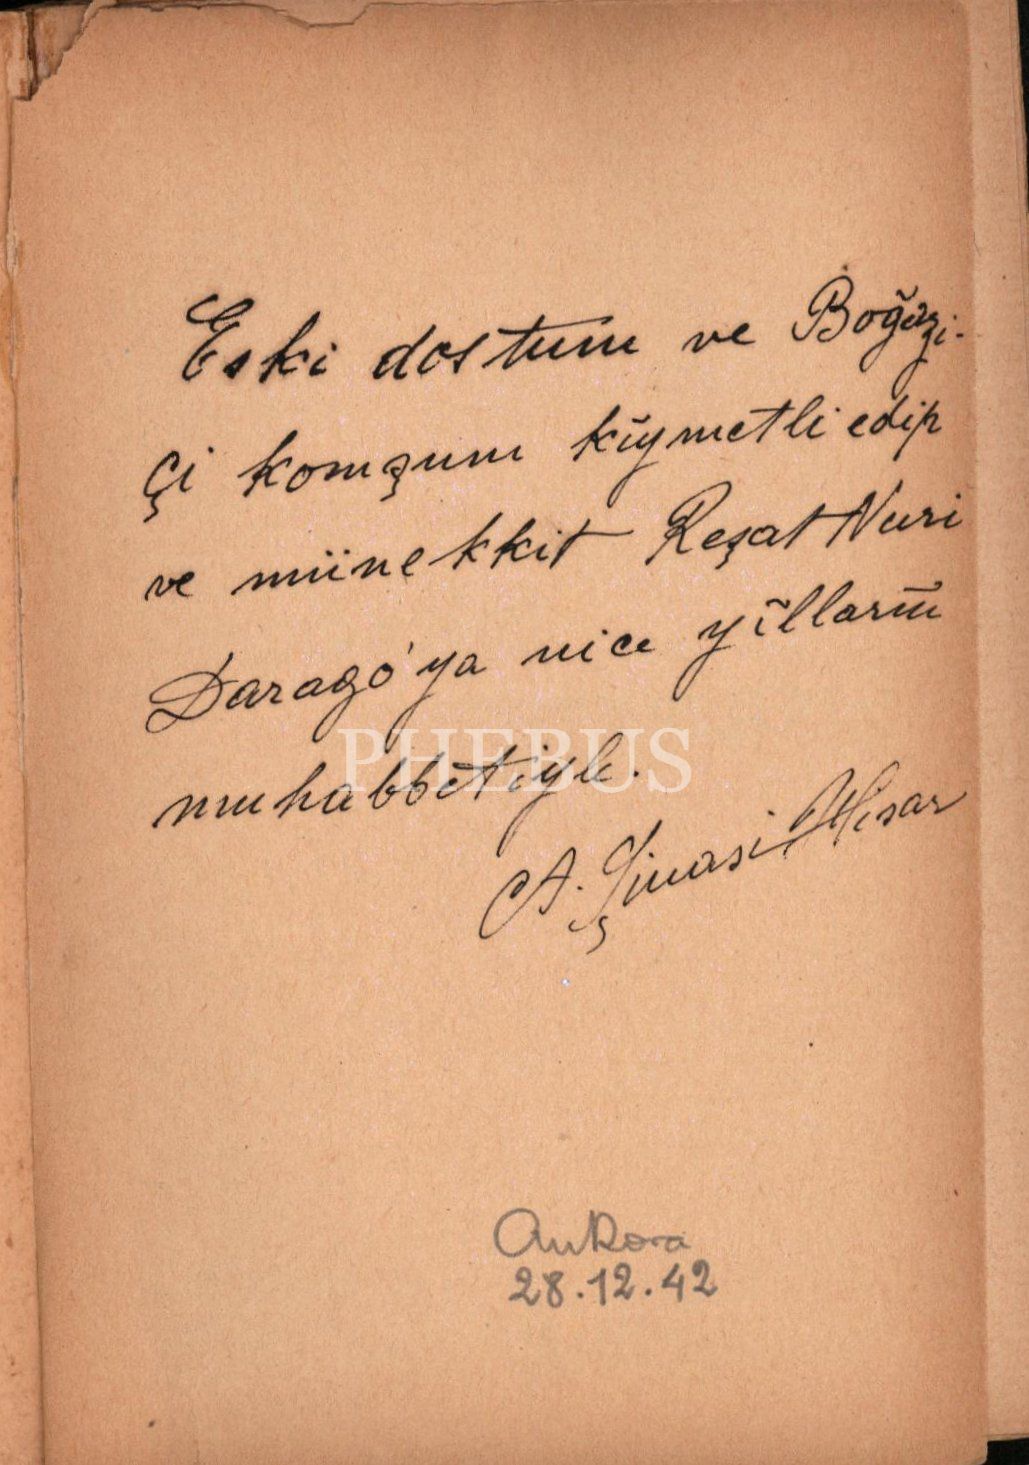 Eski dostum ve Boğazi-
çi komşum kıymetli edip
ve münekkit Reşat Nuri
Darago'ya nice yılların
muhabbetiyle.
PHEBUS
A. Şinasi Hisar
Ankara
28.12.42